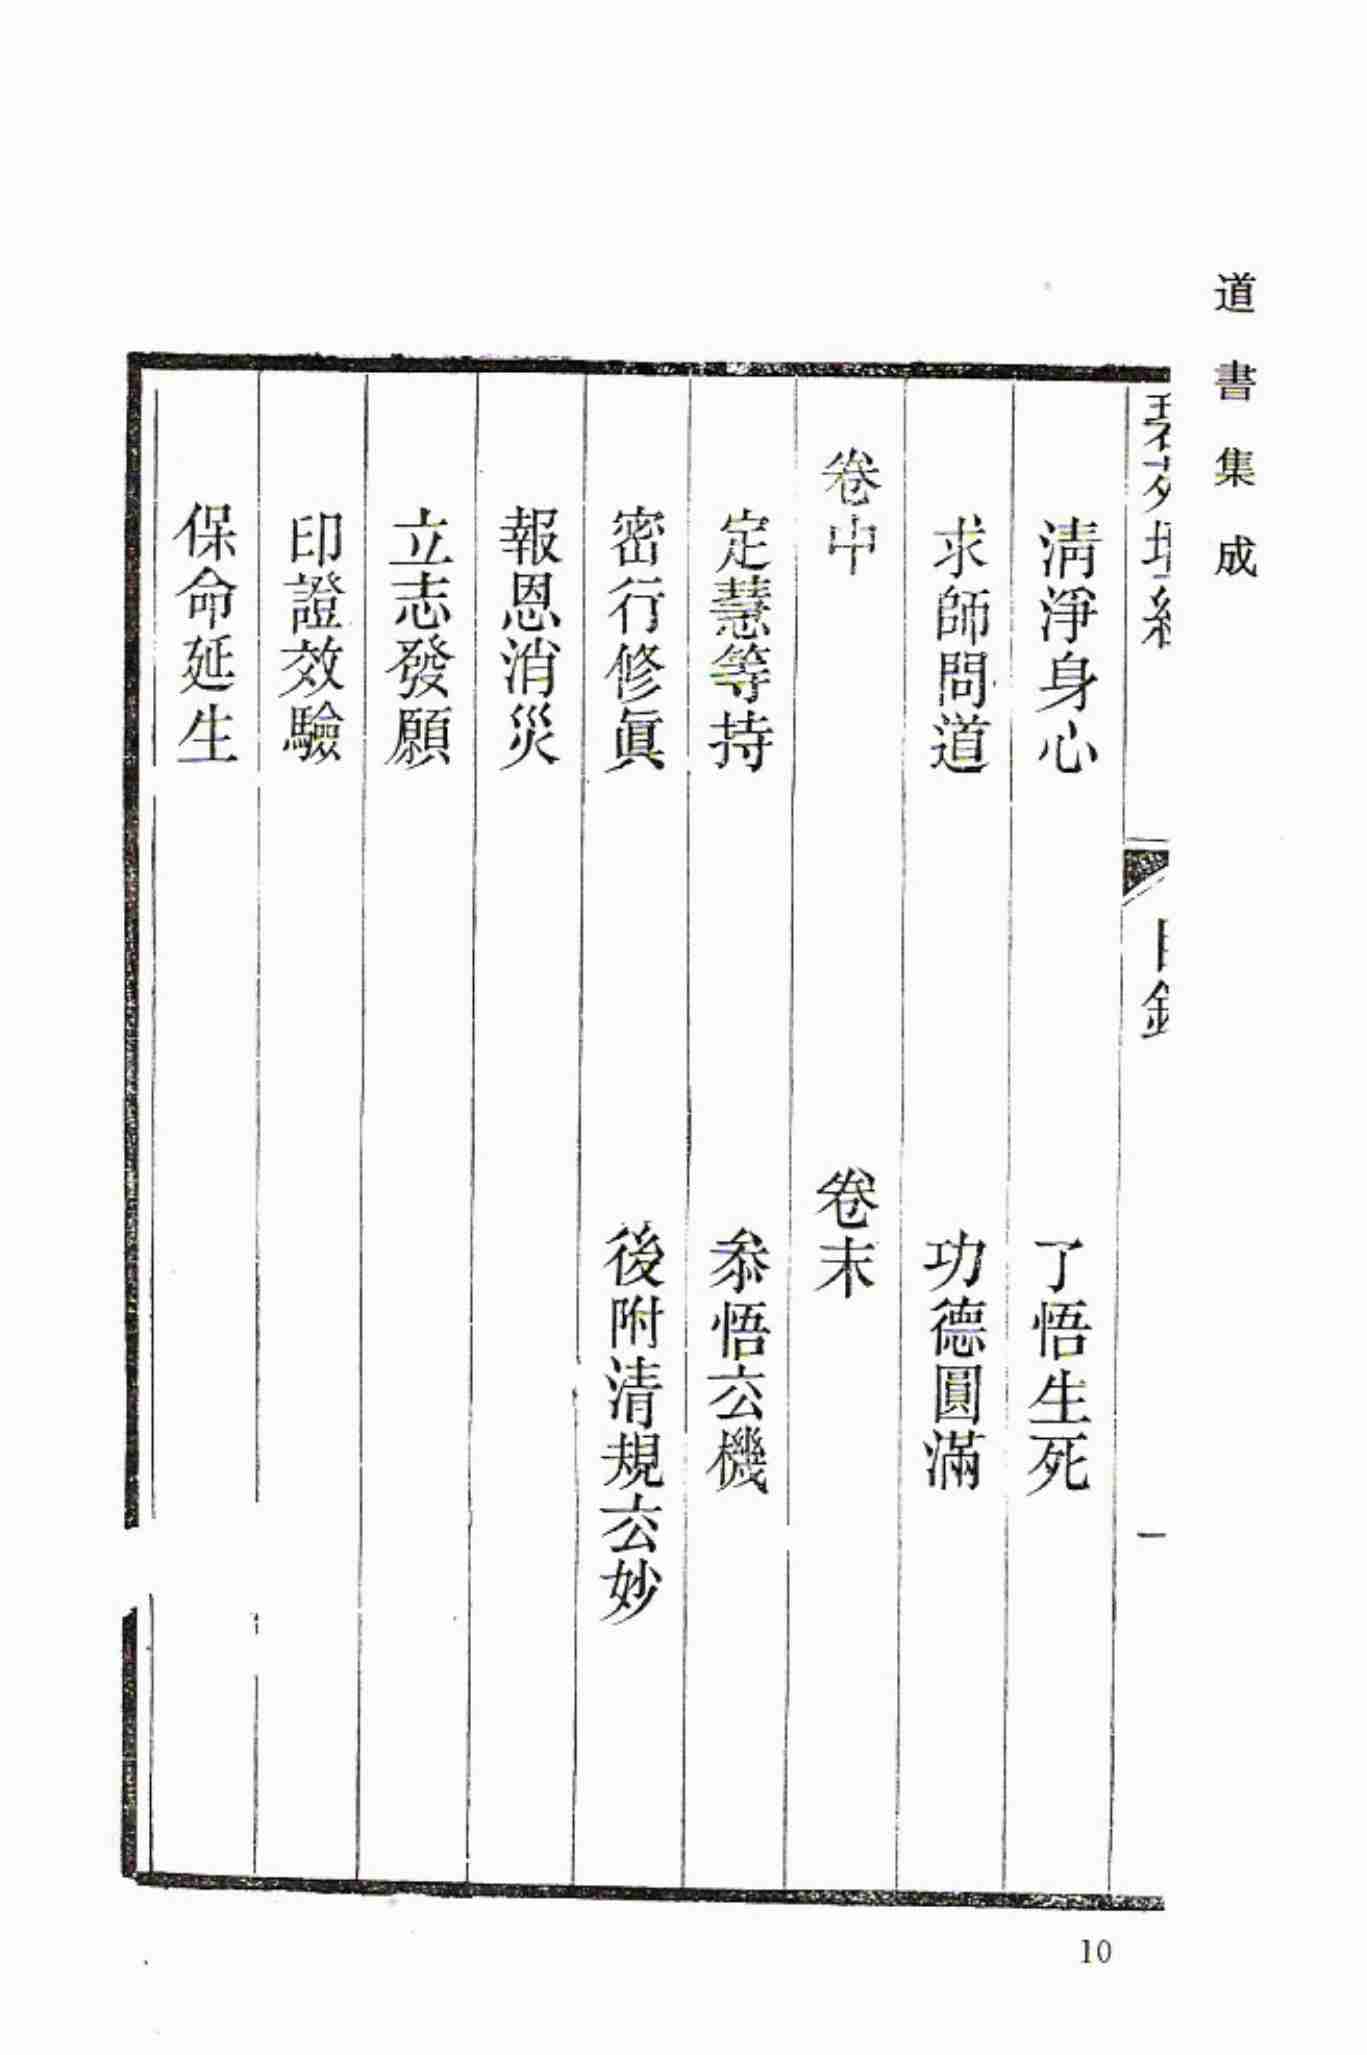 道書集成
碧苑壇經
目錄
一
清淨身心
了悟生死
求師問道
功德圓滿
卷中
卷末
定慧等持
叅悟𤣥機
密行修眞
後附清規𤣥妙
報恩消災
立志發願
印證效驗
保命延生
10